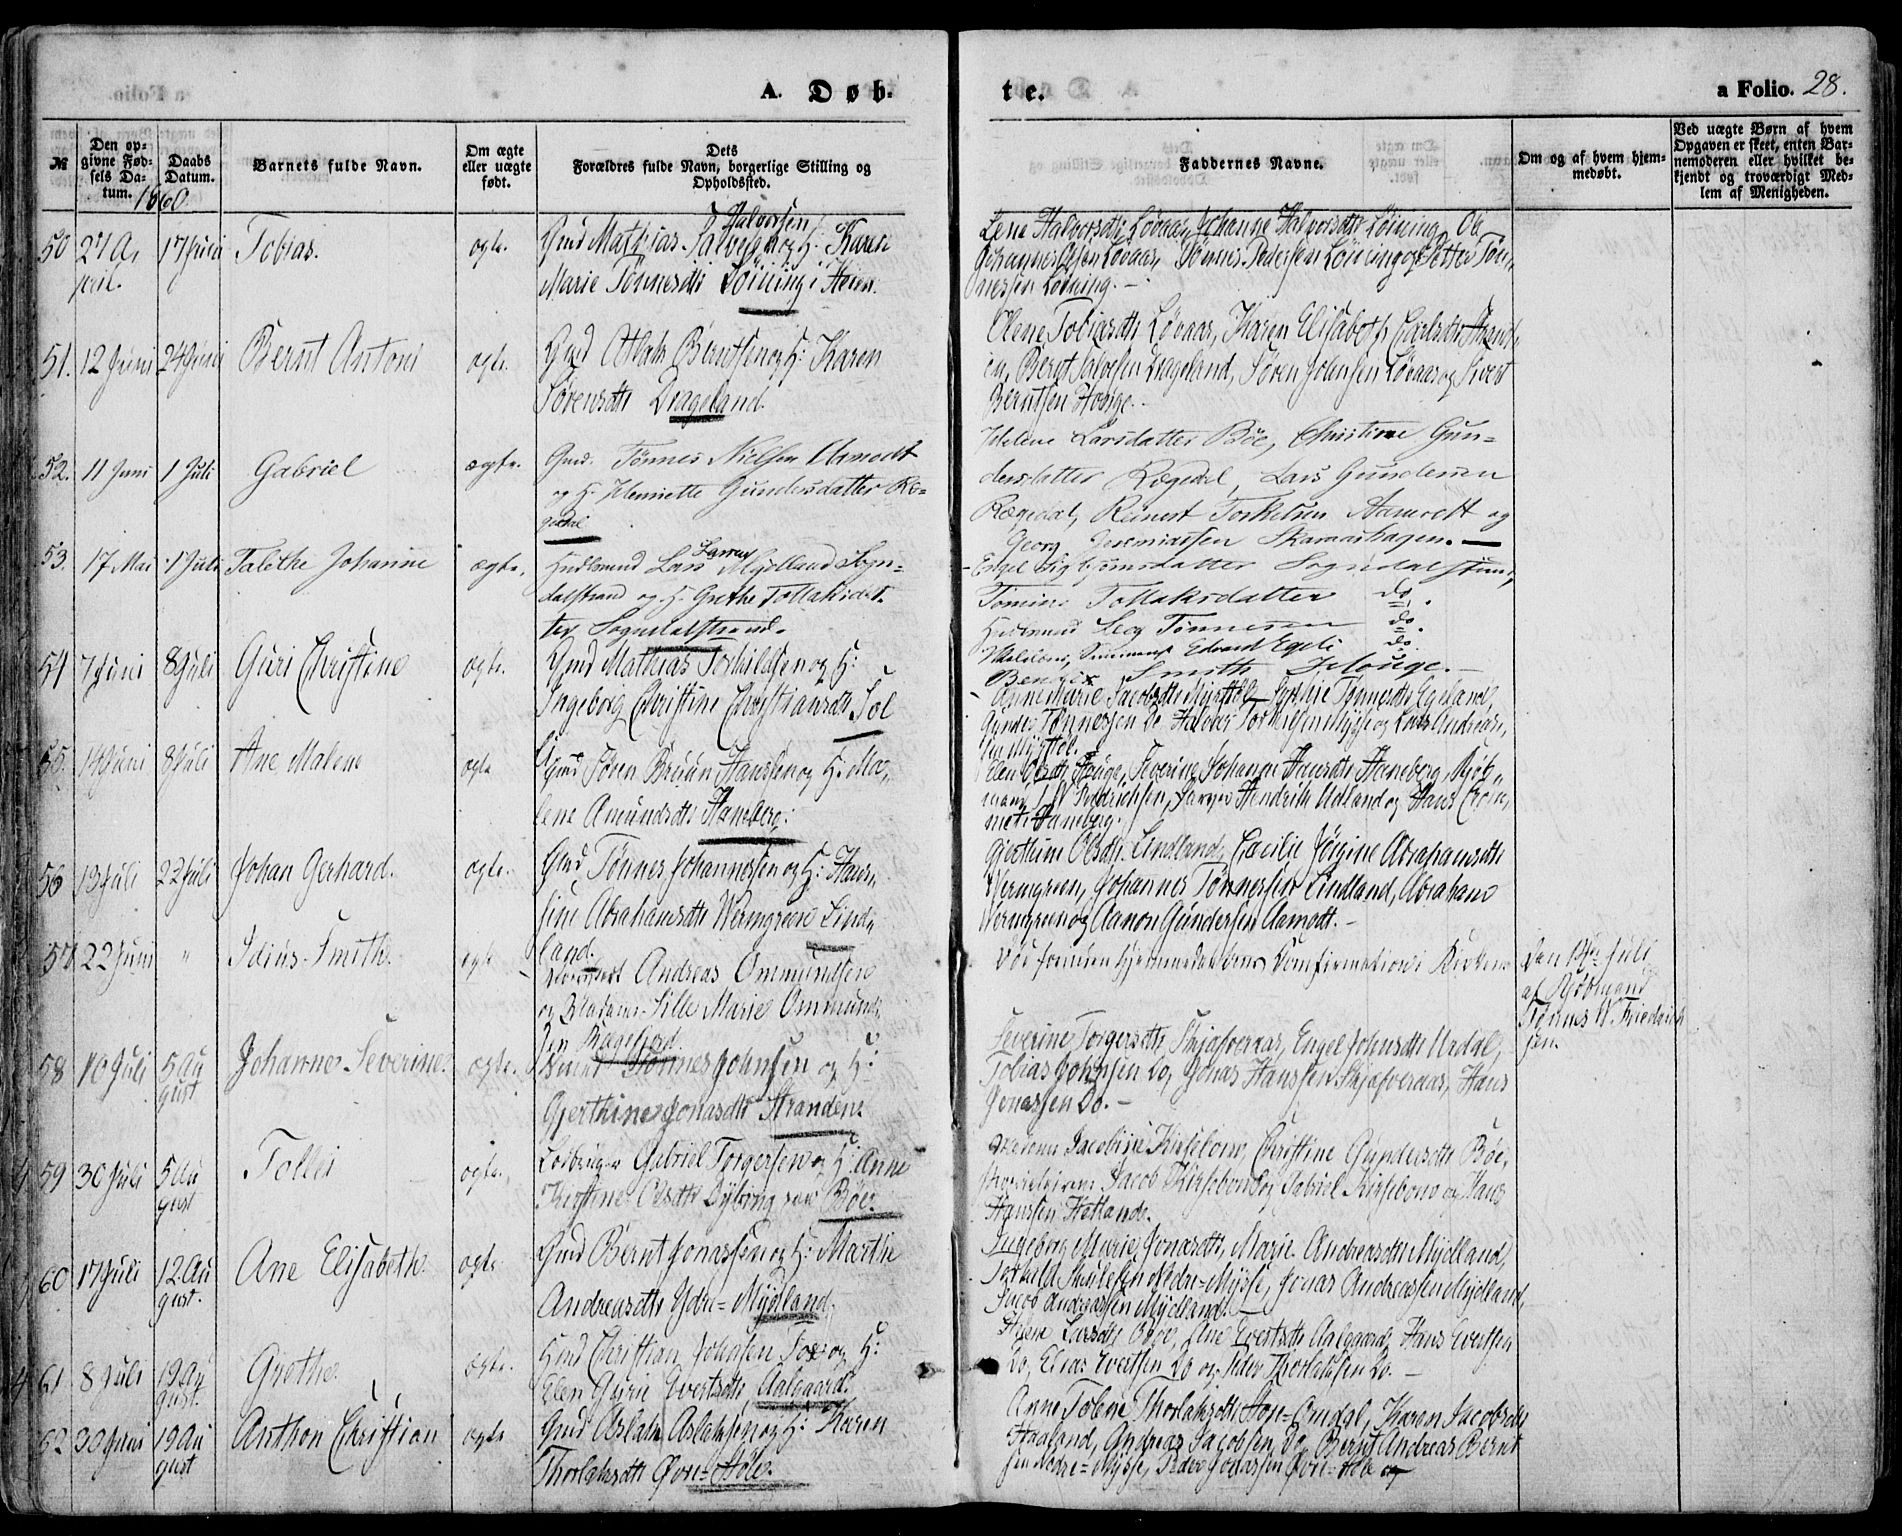 A. Døb-
te.
a Folio. 28.
№
Den op-
givne Fød-
sels Da-
tum.
Daabs
Datum.
Barnets fulde Navn.
Om ægte
eller uægte
født.
Dets
Forældres fulde Navn, borgerlige Stilling og
Opholdssted.
Faddernes Navne.
Om og af hvem hjem-
medøbt.
Ved uægte Børn af hvem
Opgaven er skeet, enten Bar-
nemoderen eller hvilket be-
kjendt og troværdigt Med-
lem af Menigheden.
1860.
50 27 A, 17 Juni Tobias. ægte. Gmd Mathias Halvorsen og H: Karen
pril. Marie Tønnesdtr Løining i Heien.
Lene Halvorsdtr Løvaas, Johanne Halvorsdtr Løining, Ole
Johannes Olsen Løvaas, Tønnes Pedersen Løining og Petter Tøn-
nessen Løining. —
51. 12 Juni 24 Juni Bernt Antoni ægte. Gmd Aslak Berntsen og H: Karen
Sørensdtr Drageland.
Olene Tobiasdtr Løvaas, Karen Elisabeth Carlsdtr
Bernt Salvesen Drageland, Søren Johnsen Løvaas og Sivert
Berntsen Houge.
52. 11 Juni 1 Juli Gabriel ægte. Gmd. Tønnes Nielsen Aamodt
og H. Henriette Gundersdatter Ræ-
gedal
Helene Larsdatter Bøe, Christine Gun-
dersdatter Rægedal, Lars Gundersen
Rægedal, Reinert Torkelsen Aamodt og
Georg Jeremiassen Skaarashagen. —
53. 17 Mai 1 Juli Talethe Johanne ægte. Huusmand Lars Larsen Mydland Sogn-
dalstrand og H. Grethe Tollaksdat-
ter Sogndalstrand.
Engel Sigbjørnsdatter Sogndalstrand,
Tomine Tollaksdatter do.
Huusmand Tønnesen do.
Edvard Egeli do.
Smith Houge. —
54 7 Juni 8 Juli Guri Christine ægte. Gmd Mathias Torkildsen og H:
Ingeborg Christine Christiansdtr Sæl
Anne Marie Jacobsdtr Myssel Sophie Tønnesdtr Egeland,
Gunder Tønnessen Do Halvor Torkildsen Mysse og Lars Andreas,
sen Myssel.
55. 14 Juni 8 Juli Ane Malene ægte Gmd Søren Bruun Hanssen og H: Ma,
lene Amundsdtr Haneberg.
Elen Olsdtr Houge, Severine Johanne Hansdtr Haneberg, Kjøb-
mand T W Fredrichsen, Hendrik Udland og Hans Crom,
meti Haneberg.
56 13 Juli 22 Juli Johan Gerhard. ægte. Gmd Tønnes Johannessen og H: Han,
sine Abrahamsdtr Wermgreen Lind,
land.
Gjerthine Olsdtr Lindland, Cæcilie Jørgine Abrahamsdtr
Wermgreen, Johannes Tønnessen Lindland, Abraham
Wermgreen og Aanon Gundersen Aamodt. —
57 22 Juni " Idius Smith. ægte Andreas Ommundsen
og Madame Sille Marie Ommund,
sen Rægefjord.
Døde forinden Hjemmedaabens Confirmation i Kirken
Den 13de Juli
af Kjøbmand
Tønnes W. Friedrich
sen.
58 10 Juli 5 Au Johanne Severine. ægte. Tønnes Johnsen og H:
gust Gjerthine Jonasdtr Stranden.
Severine Torgersdtr Skjæfveraas, Engel Johnsdtr Urdal,
Tobias Johnsen Do, Jonas Hanssen Skjæfveraas, Hans
Jonassen Do. —
59 30 Juli 5 Au Tollei ægte. Gabriel Torgersen og H: Anne
gust Kirstine Olsdtr Dybing ved Bøe.
Madame Jacobine Kirsebom, Christine Gundersdtr Bøe,
Jacob Kirsebom og Gabriel Kirsebom og Hans
Hanssen Hetland.
60 17 Juli 12. Au Ane Elisabeth. ægte. Gmd Bernt Jonassen og H: Marthe
gust. Andreasdtr Ydre=Mydland.
Ingeborg Marie Jonasdtr, Marie Andreasdtr Mydland,
Torkild Skulesen Nedre=Mysse, Jonas Andreassen Mydland,
Jacob Andreassen Mydland.
61 8 Juli 19 Au Grethe. ægte. Huusmd Christian Johnsen Sæe og H:
gust. Elen Gurie Evertsdtr Aalgaard.
Helene Larsdtr Bøe, Ane Evertsdtr Aalgaard, Hans Evertsen
Do, Elias Evertsen Do og Peder Thorlaksen Do. —
62 30 Juni 19 Au Anthon Christian ægte Gmd Aslak Aslaksen og H: Karen
gust Thorlaksdtr Øvre=Hole.
Anne Tolene Thorlaksdtr Omdal, Karen Jacobsdtr
Haaland, Andreas Jacobsen Do, Bernt Andreas Bernt
sen Nedre=Mysse, Peder Jonassen Øvre=Hole og